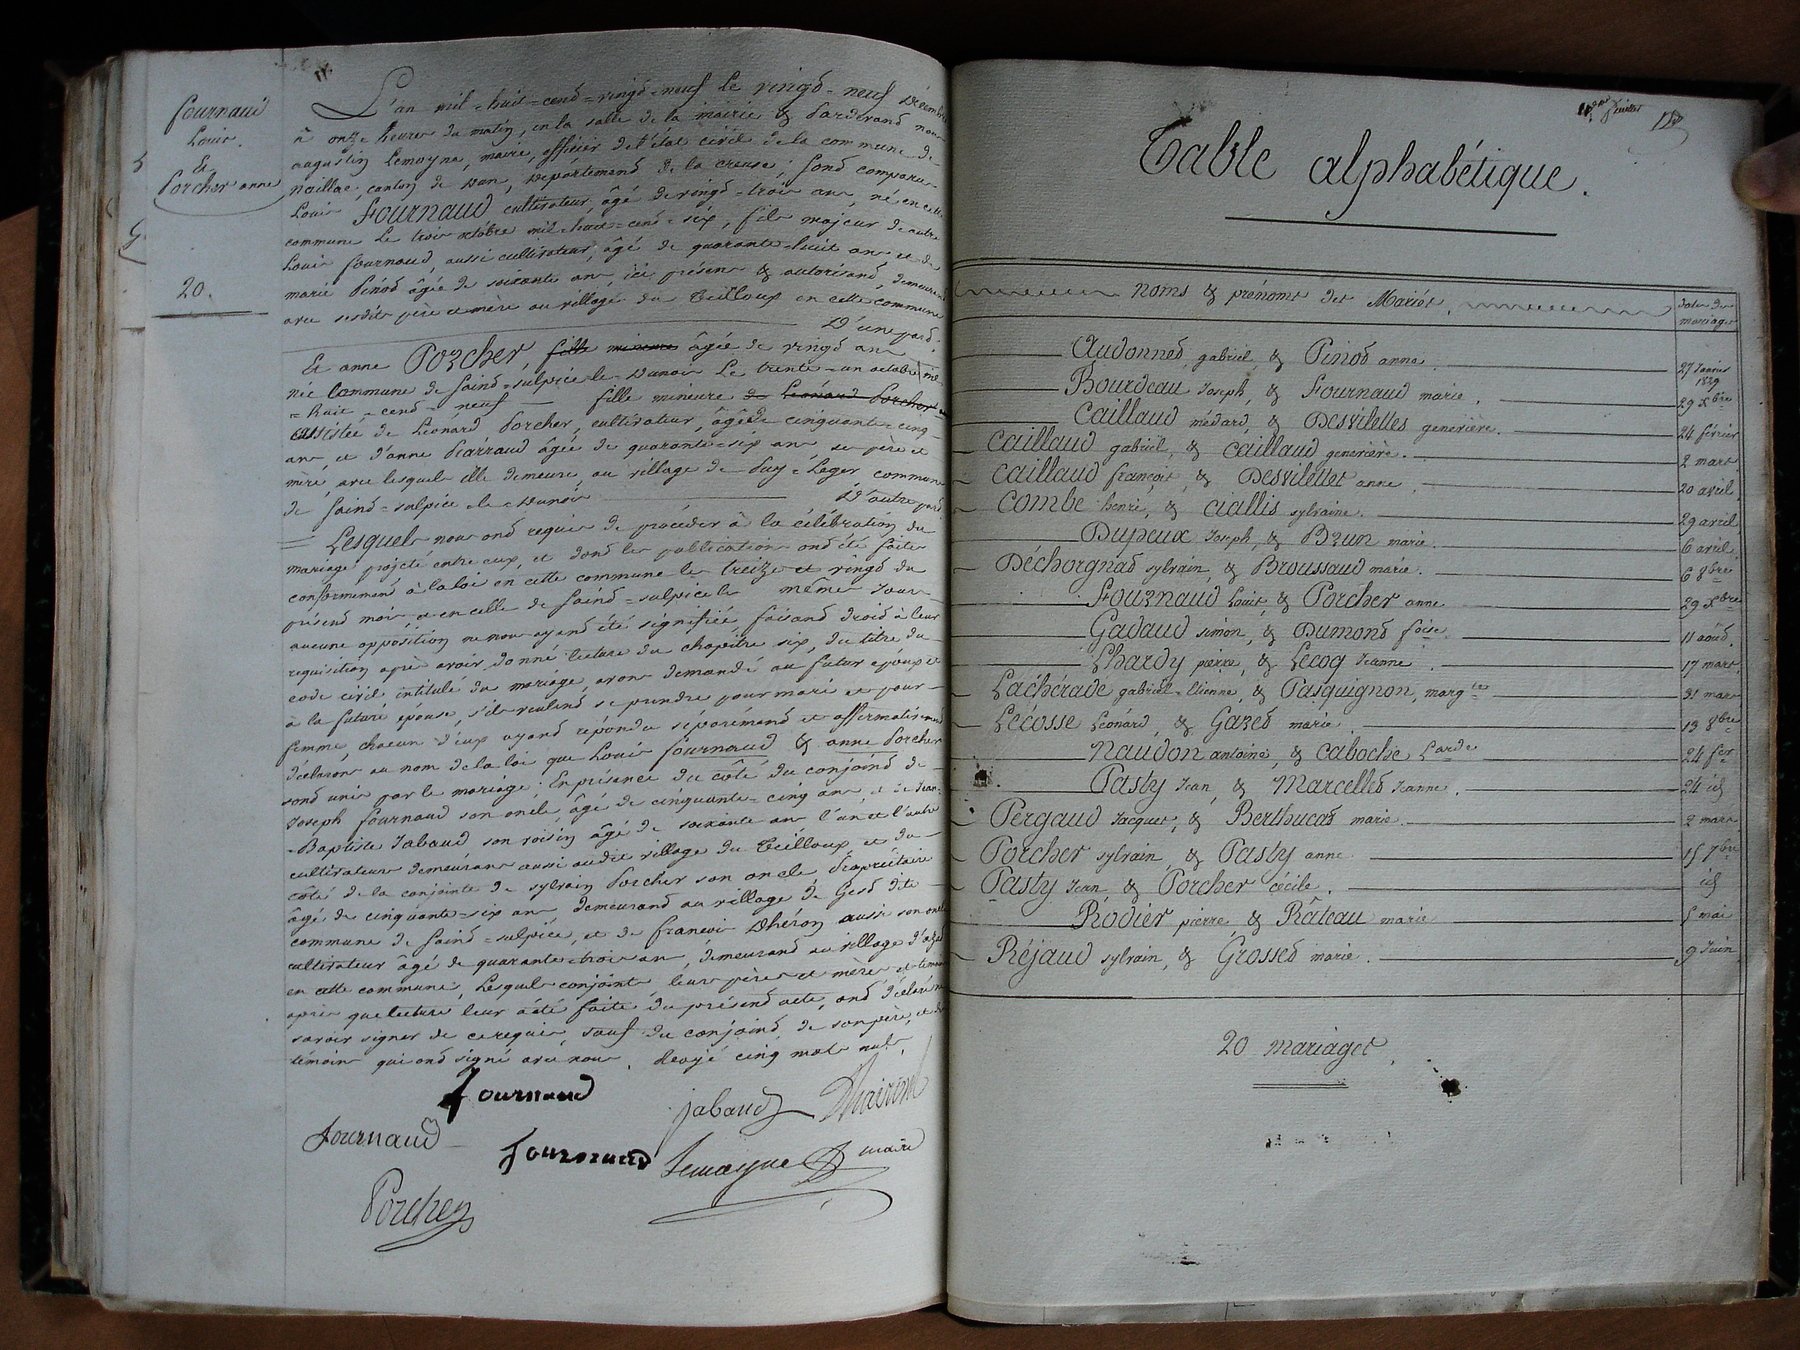 fournaud
Louis.
&
Porcher anne
20.
L'an mil=huit=cend=vingd=neuf le vingd=neuf décembre
à onze heures du matin, en la salle de la mairie & pardevand nous
augustin Lemoyne, maire, officier de l'état civil de la commune de
Naillac, canton de Dun, département de la creuse; sond comparus
Louis Fournaud cultivateur, âgé de vingd-trois ans, né en cette
commune le trois octobre mil=huit=cend=six, fils majeur de autre
Louis fournaud, aussi cultivateur, âgé de quarante=huit ans et de
marie Pinod âgée de soixante ans, ici présens & autorisand, demeurand
avec sesdits père et mère au village du Teilloux en cette commune
D'une pard.
Et anne Porcher fille mineure âgée de vingd ans
née commune de saind=sulpice-le-Dunois le trente-un octobre mil
=huit=cend=neuf fille mineure de Léonard Porcher
assistée de Léonard Porcher, cultivateur, âgé de cinquante-cinq
ans, et d'anne Piarraud âgée de quarante-six ans ses père et
mère, avec lesquels elle demeure, au village de Puy=Léger commune
de saind=sulpice-le-Dunois D'autre pard
Lesquels nous ond requis de procéder à la célébration du
mariage projeté entre eux, et dond les publications ond été faites
conformémend à la loi en cette commune les treize et vingd du
présend mois, et en celle de saind=sulpice les mêmes jours
aucune opposition ne nous ayand été signifiée, faisand droid à leur
réquisition après avoir donné lecture du chapitre six, du titre du
code civil intitulé du mariage, avons demandé au futur époux et
à la future épouse, s'ils veulend se prendre pour mari et pour
femme, chacun d'eux ayand répondu séparémend et affirmativemend
déclarons au nom de la loi que Louis fournaud & anne Porcher
sond unis par le mariage. En présence du côté du conjoind de
Joseph fournaud son oncle, âgé de cinquante-cinq ans, et de Jean
-Baptiste Jabaud son voisin âgé de soixante ans l'un et l'autre
cultivateurs demeurans aussi audit village du Teilloux et du
côté de la conjointe de sylvain Porcher son oncle propriétaire
âgé de cinquante-six ans demeurand au village de Gesd dite
commune de saind=sulpice, et de françois Dhéron aussi son oncle
cultivateur âgé de quarante-trois ans, demeurand au village
en cette commune, Lesquels conjoints leurs pères et mères et témoins
après que lecture leur a été faite du présend acte, ond déclaré ne
savoir signer de ce requis, sauf du conjoind, de son père, et des
témoins qui ond signé avec nous. Rayé cinq mots nuls.
fournaud
Jabaud
fournaud
fournaud Lemoyne maire
Porcher
Table alphabétique.
noms & prénoms des Mariés. dates des mariages
Audonned gabriel & Pinod anne 27 Janvier 1829
Bourdeau Joseph, & Fournaud marie. 29 Xbre
Caillaud médard, & Desvilettes genevière. 24 février
Caillaud gabriel, & Caillaud genevière. 2 mars
Caillaud françois, & Desvilettes anne. 20 avril
Combe henri, & Ciallis sylvaine. 29 avril
Dupeux Joseph, & Brun marie. 6 avril
Déchorgnad sylvain, & Broussaud marie. 6 8bre
Fournaud Louis, & Porcher anne 29 Xbre
Gadaud simon, & Dumond foise. 11 aoûd
Lhardy pierre, & Lecoq Jeanne. 17 mars
Lachérade gabriel-Etienne, & Pasquignon, margte 31 mars
Lécosse Léonard, & Gazed marie. 13 8bre
Naudon antoine, & Caboche Larde 24 fer
Pasty Jean, & Marcelled Jeanne. 24 id
Pergaud Jacques, & Berthucad marie. 2 mars
Porcher sylvain, & Pasty anne 15 7bre
Pasty Jean & Porcher Cécile. id
Rodier pierre, & Râteau marie 5 mai
Réjaud sylvain, & Grossed marie. 9 Juin
20 mariages.